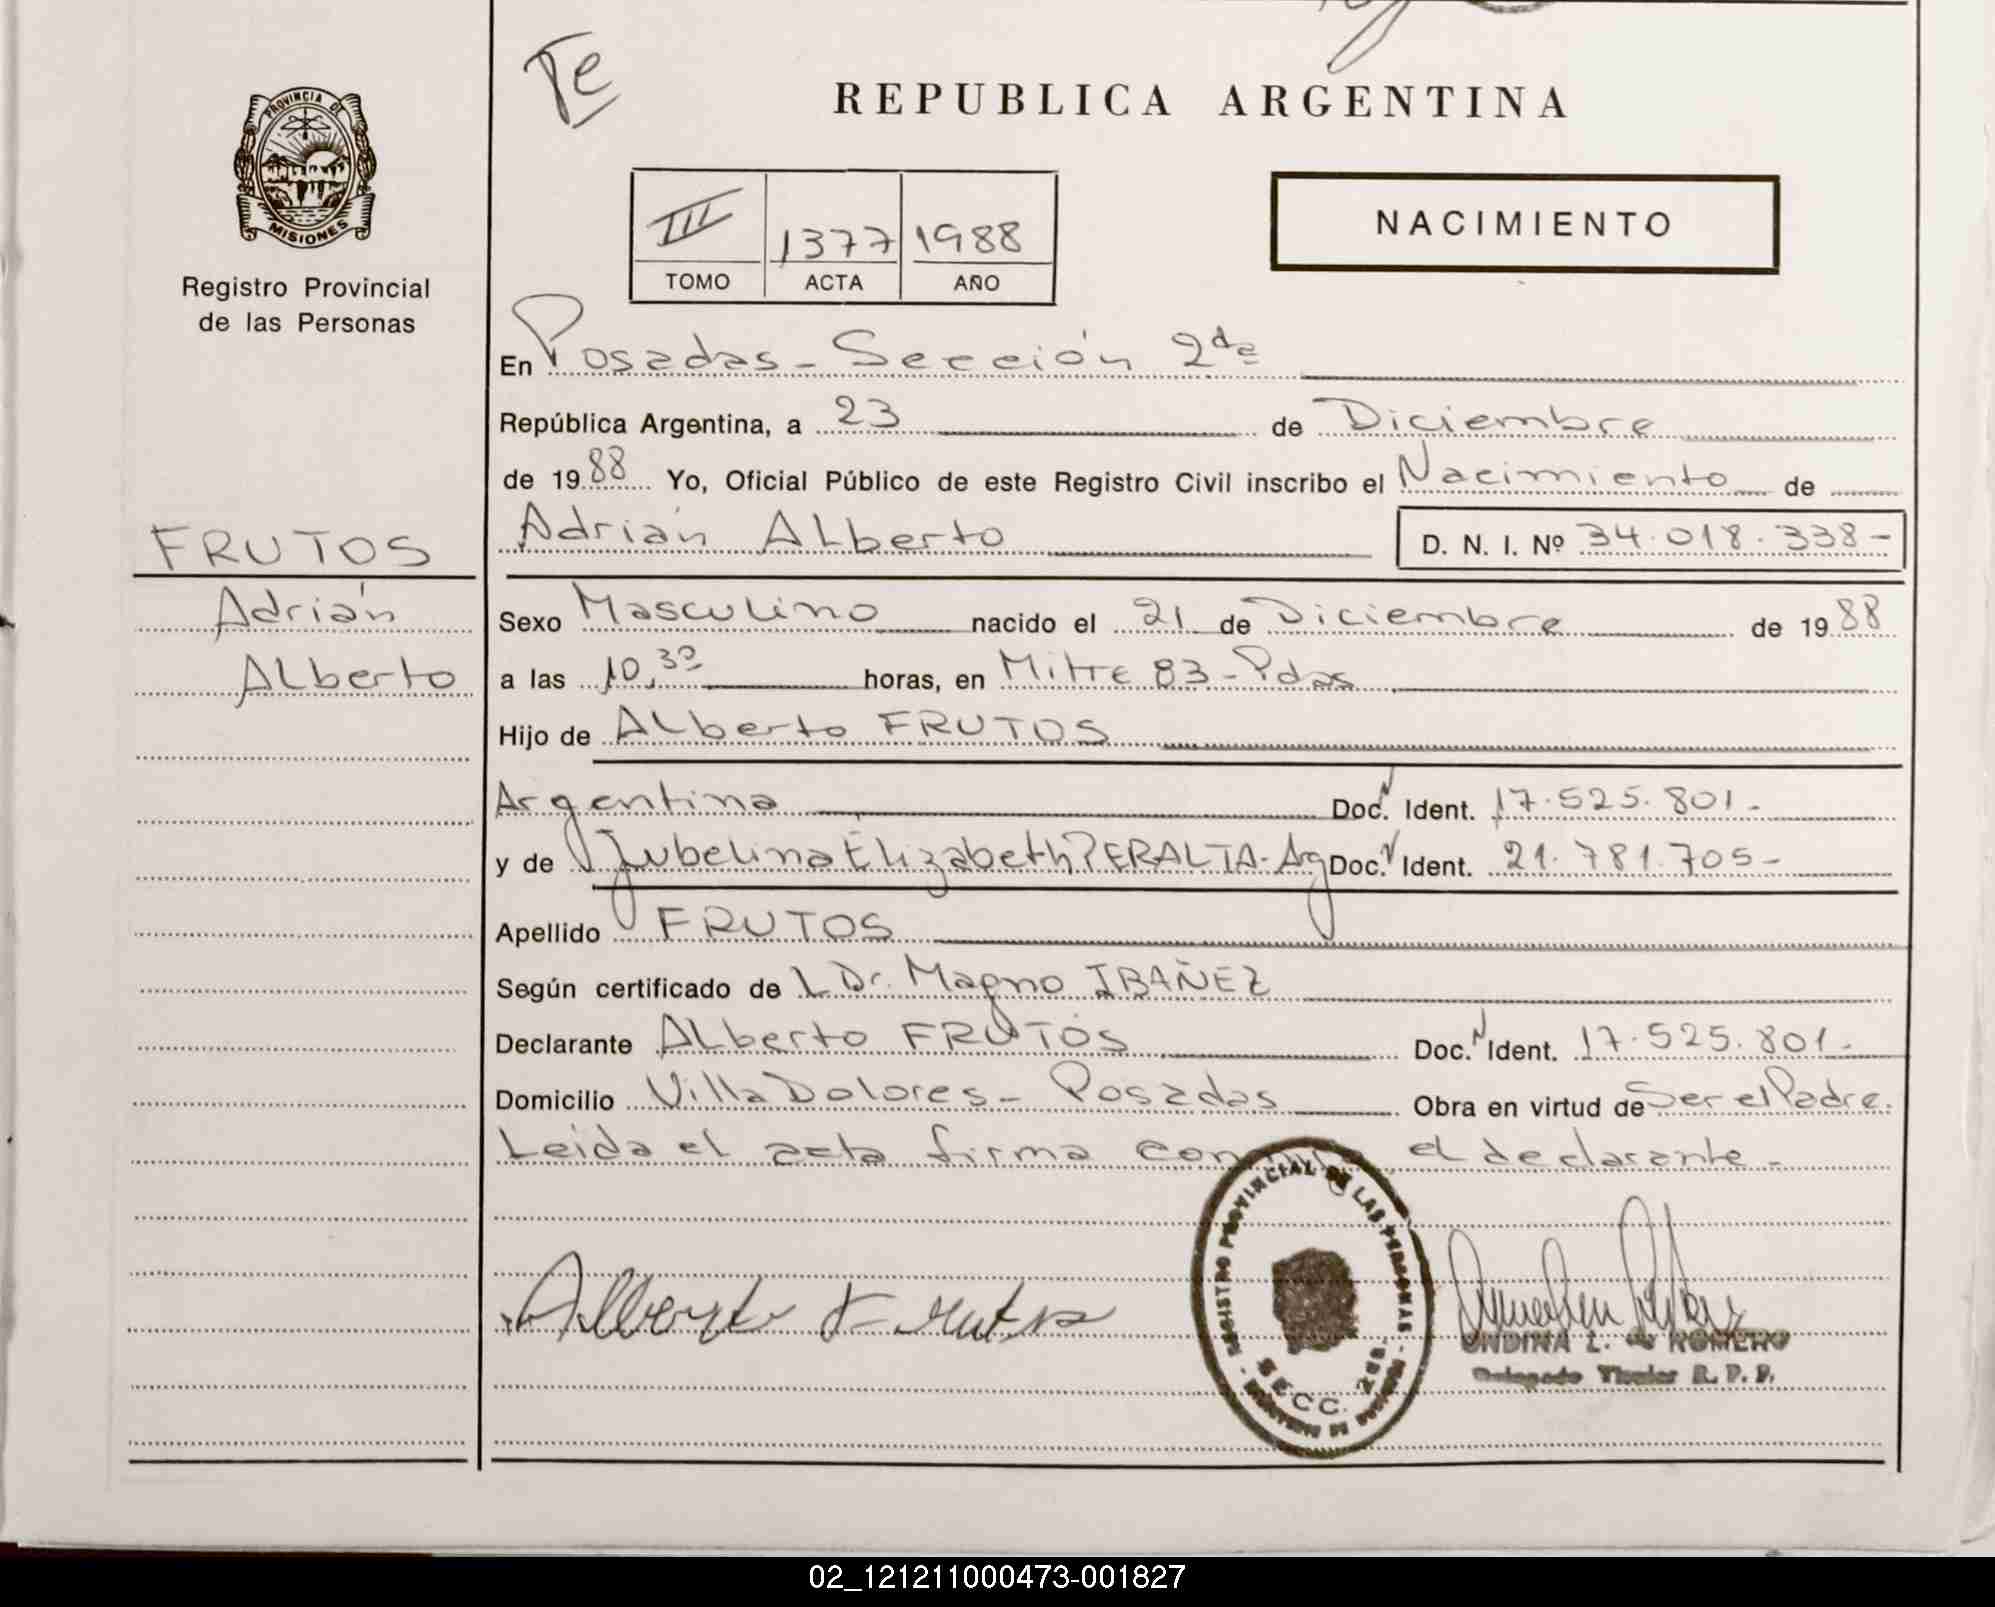 Te
REPUBLICA ARGENTINA
PROVINCIA DE
MISIONES
Registro Provincial
de las Personas
III 1377 1988
TOMO ACTA AÑO
NACIMIENTO
En Posadas - Sección 2da
República Argentina, a 23 de Diciembre
de 1988 Yo, Oficial Público de este Registro Civil inscribo el Nacimiento de
Adrián Alberto D. N. I. Nº 34.018.338-
FRUTOS
Adrián
Alberto
Sexo Masculino nacido el 21 de Diciembre de 1988
a las 10,30 horas, en Mitre 83 - Pdas
Hijo de Alberto FRUTOS
Argentina Doc. Ident. 17.525.801.-
y de Jubelina Elizabeth PERALTA - Arg Doc. Ident. 21.781.705-
Apellido FRUTOS
Según certificado de L Dr. Magno IBAÑEZ
Declarante Alberto FRUTOS Doc. Ident. 17.525.801.-
Domicilio Villa Dolores - Posadas Obra en virtud de Ser el Padre.
Leida el acta firma el declarante.-
Alberto Frutos
REGISTRO PROVINCIAL DE LAS PERSONAS
SECC. 2da.
ONDINA L. de ROMERO
Delegado Titular R. P. P.
02_121211000473-001827